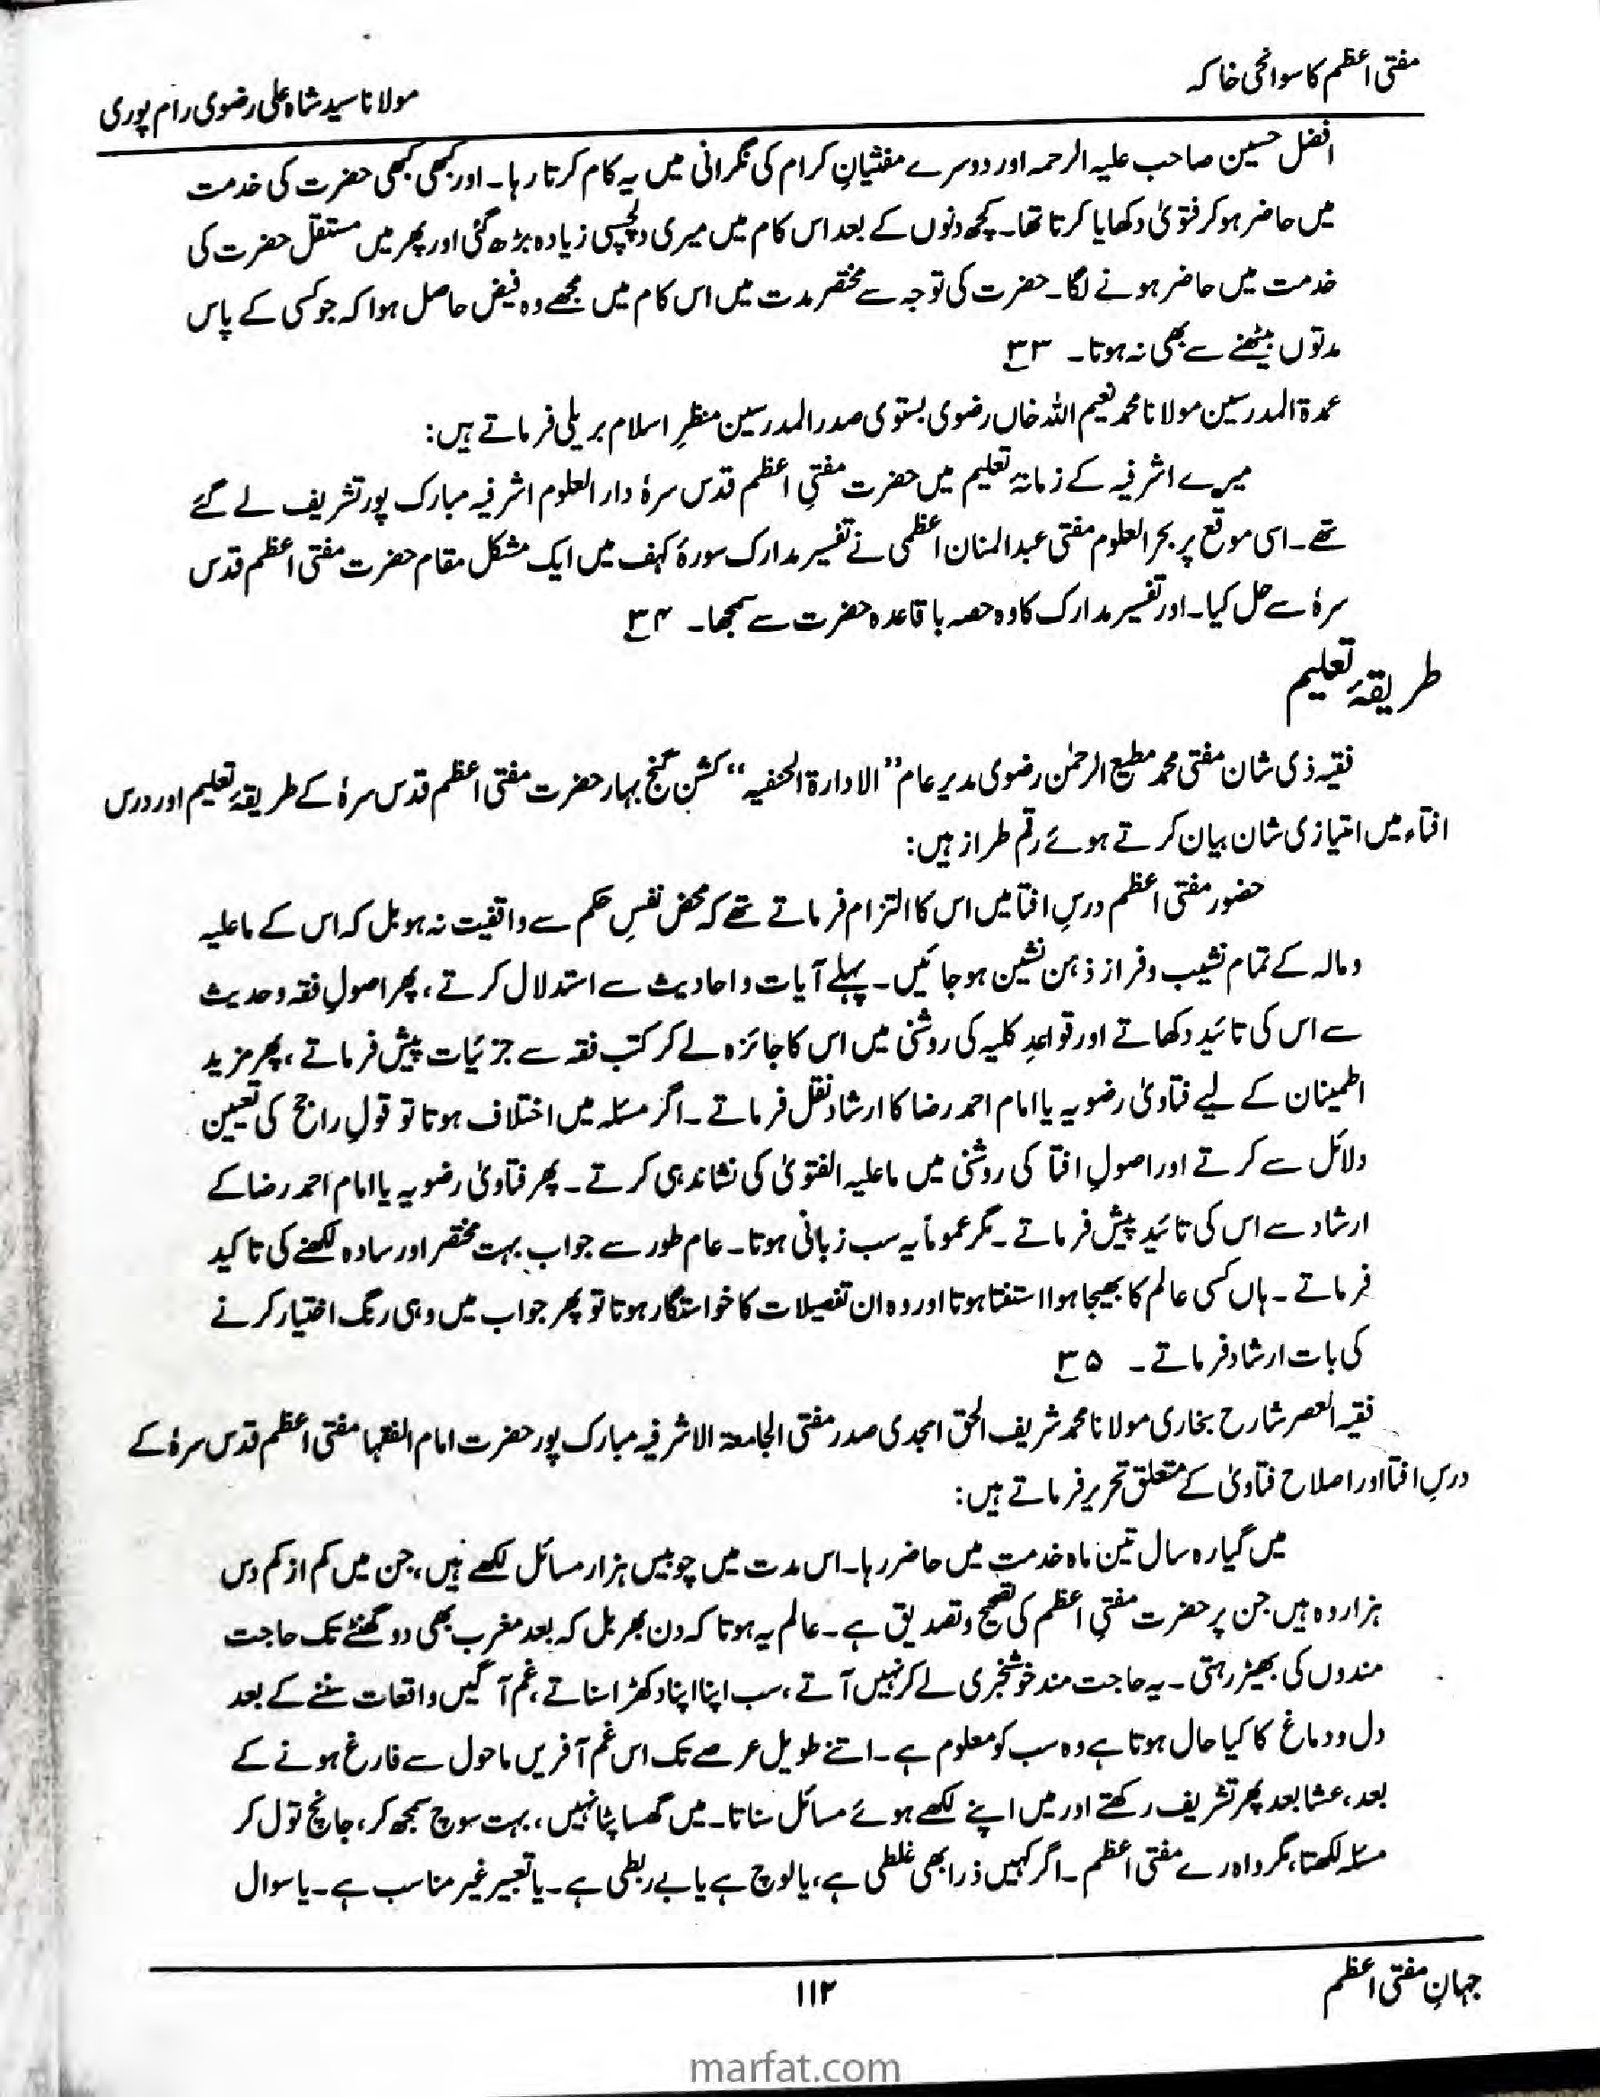 مفتی اعظم کا سوانحی خاکہ
مولانا سید شاہ علی رضوی رام پوری
افضل حسین صاحب علیہ الرحمہ اور دوسرے مفتیانِ کرام کی نگرانی میں یہ کام کرتا رہا۔ اور کبھی کبھی حضرت کی خدمت
میں حاضر ہوکر فتویٰ دکھایا کرتا تھا۔ کچھ دنوں کے بعد اس کام میں میری دلچسپی زیادہ بڑھ گئی اور پھر میں مستقل حضرت کی
خدمت میں حاضر ہونے لگا۔ حضرت کی توجہ سے مختصر مدت میں اس کام میں مجھے وہ فیض حاصل ہوا کہ جو کسی کے پاس
مدتوں بیٹھنے سے بھی نہ ہوتا۔ ۳۳
عمدۃ المدرسین مولانا محمد نعیم اللہ خاں رضوی بستوی صدر المدرسین منظرِ اسلام بریلی فرماتے ہیں:
میرے اشرفیہ کے زمانۂ تعلیم میں حضرت مفتیِ اعظم قدس سرہٗ دار العلوم اشرفیہ مبارک پور تشریف لے گئے
تھے۔ اسی موقع پر بحر العلوم مفتی عبد المنان اعظمی نے تفسیر مدارک سورۂ کہف میں ایک مشکل مقام حضرت مفتی اعظم قدس
سرہٗ سے حل کیا۔ اور تفسیر مدارک کا وہ حصہ باقاعدہ حضرت سے سمجھا۔ ۳۴
طریقۂ تعلیم
فقیہ ذی شان مفتی محمد مطیع الرحمٰن رضوی مدیر عام ”الادارۃ الحنفیہ“ کشن گنج بہار حضرت مفتی اعظم قدس سرہٗ کے طریقۂ تعلیم اور درس
افتاء میں امتیازی شان بیان کرتے ہوئے رقم طراز ہیں:
حضور مفتی اعظم درسِ افتا میں اس کا التزام فرماتے تھے کہ محض نفسِ حکم سے واقفیت نہ ہو بل کہ اس کے ماعلیہ
ومالہ کے تمام نشیب و فراز ذہن نشین ہوجائیں۔ پہلے آیات و احادیث سے استدلال کرتے، پھر اصولِ فقہ و حدیث
سے اس کی تائید دکھاتے اور قواعدِ کلیہ کی روشنی میں اس کا جائزہ لے کر کتب فقہ سے جزئیات پیش فرماتے، پھر مزید
اطمینان کے لیے فتاویٰ رضویہ یا امام احمد رضا کا ارشاد نقل فرماتے۔ اگر مسئلہ میں اختلاف ہوتا تو قولِ راجح کی تعیین
دلائل سے کرتے اور اصولِ افتا کی روشنی میں ماعلیہ الفتویٰ کی نشاندہی کرتے۔ پھر فتاویٰ رضویہ یا امام احمد رضا کے
ارشاد سے اس کی تائید پیش فرماتے۔ مگر عموماً یہ سب زبانی ہوتا۔ عام طور سے جواب بہت مختصر اور سادہ لکھنے کی تاکید
فرماتے۔ ہاں کسی عالم کا بھیجا ہوا استفتا ہوتا اور وہ ان تفصیلات کا خواستگار ہوتا تو پھر جواب میں وہی رنگ اختیار کرنے
کی بات ارشاد فرماتے۔ ۳۵
فقیہ العصر شارح بخاری مولانا محمد شریف الحق امجدی صدر مفتی الجامعۃ الاشرفیہ مبارک پور حضرت امام الفقہا مفتی اعظم قدس سرہٗ کے
درسِ افتا اور اصلاح فتاویٰ کے متعلق تحریر فرماتے ہیں:
میں گیارہ سال تین ماہ خدمت میں حاضر رہا۔ اس مدت میں چوبیس ہزار مسائل لکھے ہیں، جن میں کم از کم دس
ہزار وہ ہیں جن پر حضرت مفتیِ اعظم کی تصحیح و تصدیق ہے۔ عالم یہ ہوتا کہ دن بھر بل کہ بعد مغرب بھی دو گھنٹے تک حاجت
مندوں کی بھیڑ رہتی۔ یہ حاجت مند خوشخبری لے کر نہیں آتے، سب اپنا اپنا دکھڑا سناتے، غم آگیں واقعات سننے کے بعد
دل و دماغ کا کیا حال ہوتا ہے وہ سب کو معلوم ہے۔ اتنے طویل عرصے تک اس غم آفریں ماحول سے فارغ ہونے کے
بعد، عشا بعد پھر تشریف رکھتے اور میں اپنے لکھے ہوئے مسائل سناتا۔ میں گھسا پٹا نہیں، بہت سوچ سمجھ کر، جانچ تول کر
مسئلہ لکھتا، مگر واہ رے مفتی اعظم۔ اگر کہیں ذرا بھی غلطی ہے، یا لوچ ہے یا بے ربطی ہے۔ یا تعبیر غیر مناسب ہے۔ یا سوال
جہانِ مفتی اعظم
۱۱۲
marfat.com